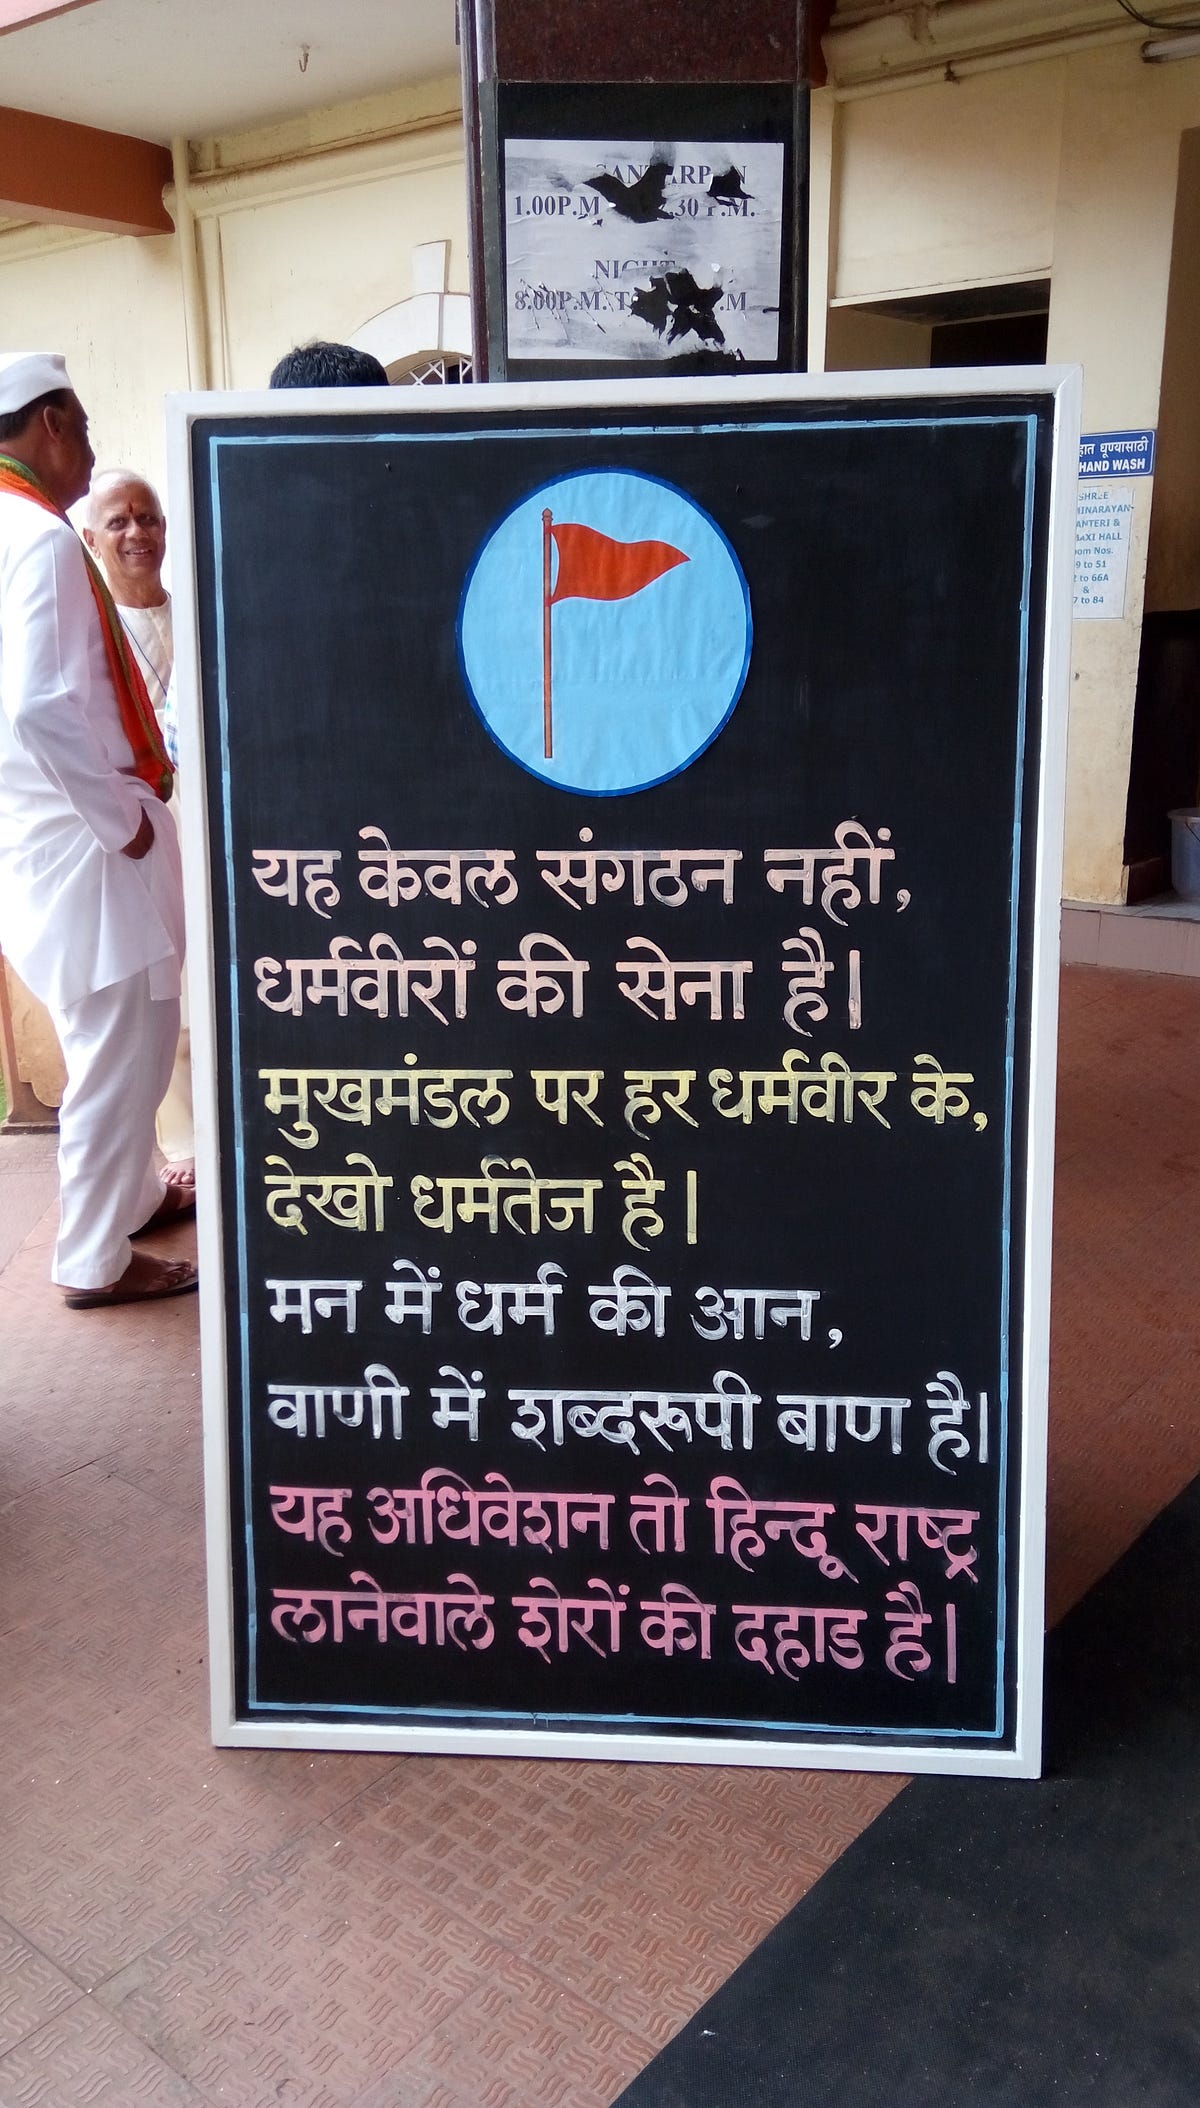 1.00P.M .30 P.M.
NIGHT
8.00P.M. T .M
हात धूण्यासाठी
HAND WASH
SHREE
& 
HALL
Nos.
to 51
to 66A
&
to 84
यह केवल संगठन नहीं,
धर्मवीरों की सेना है।
मुखमंडल पर हर धर्मवीर के,
देखो धर्मतेज है।
मन में धर्म की आन,
वाणी में शब्दरूपी बाण है।
यह अधिवेशन तो हिन्दू राष्ट्र
लानेवाले शेरों की दहाड है।